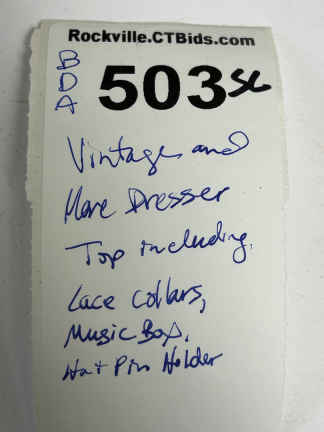 Rockville.CTBids.com
BDA 503 SC
Vintage and
More Dresser
Top including,
Lace Collars,
Music Box,
Hat Pin Holder